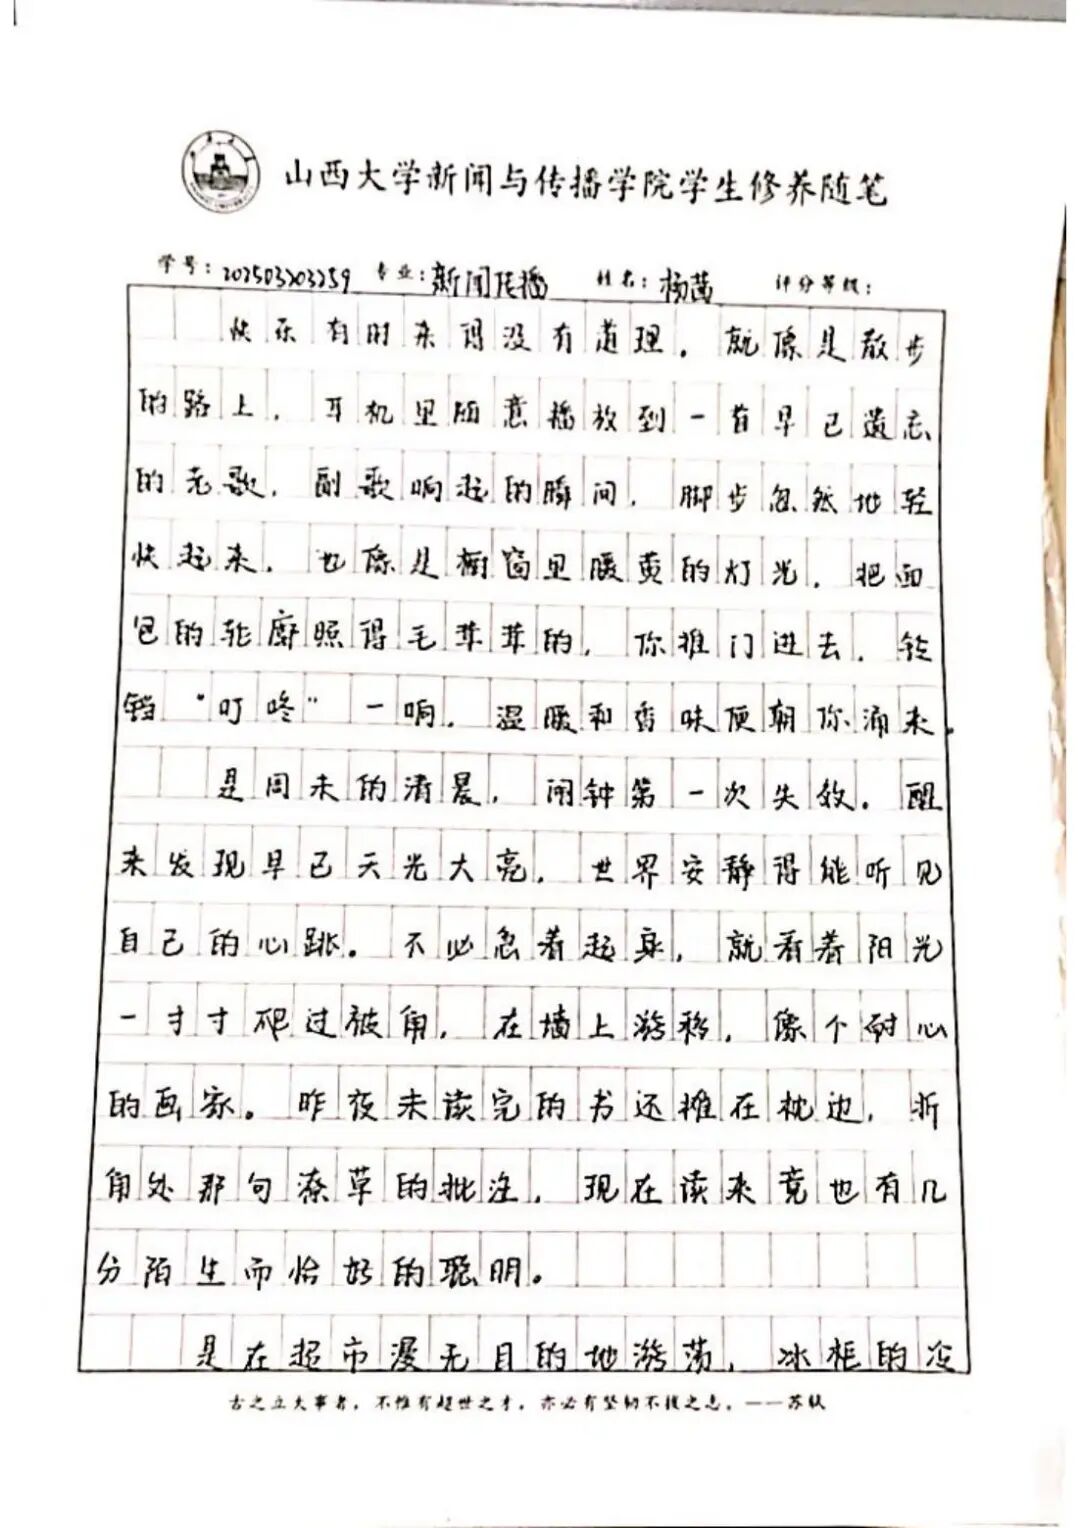 山西大学新闻与传播学院学生修养随笔
学号：202503203259 专业：新闻传播 姓名：杨茜 评分等级：
快乐有时来得没有道理。就像是散步
的路上，耳机里随意播放到一首早已遗忘
的老歌，副歌响起的瞬间，脚步忽然地轻
快起来。也像是橱窗里暖黄的灯光，把面
包的轮廓照得毛茸茸的，你推门进去，铃
铛“叮咚”一响，温暖和香味便朝你涌来。
是周末的清晨，闹钟第一次失效。醒
来发现早已天光大亮，世界安静得能听见
自己的心跳。不必急着起身，就看着阳光
一寸寸爬过被角，在墙上游移，像个耐心
的画家。昨夜未读完的书还摊在枕边，折
角处那句潦草的批注，现在读来竟也有几
分陌生而恰好的聪明。
是在超市漫无目的地游荡，冰柜的冷
古之立大事者，不惟有超世之才，亦必有坚韧不拔之志。——苏轼